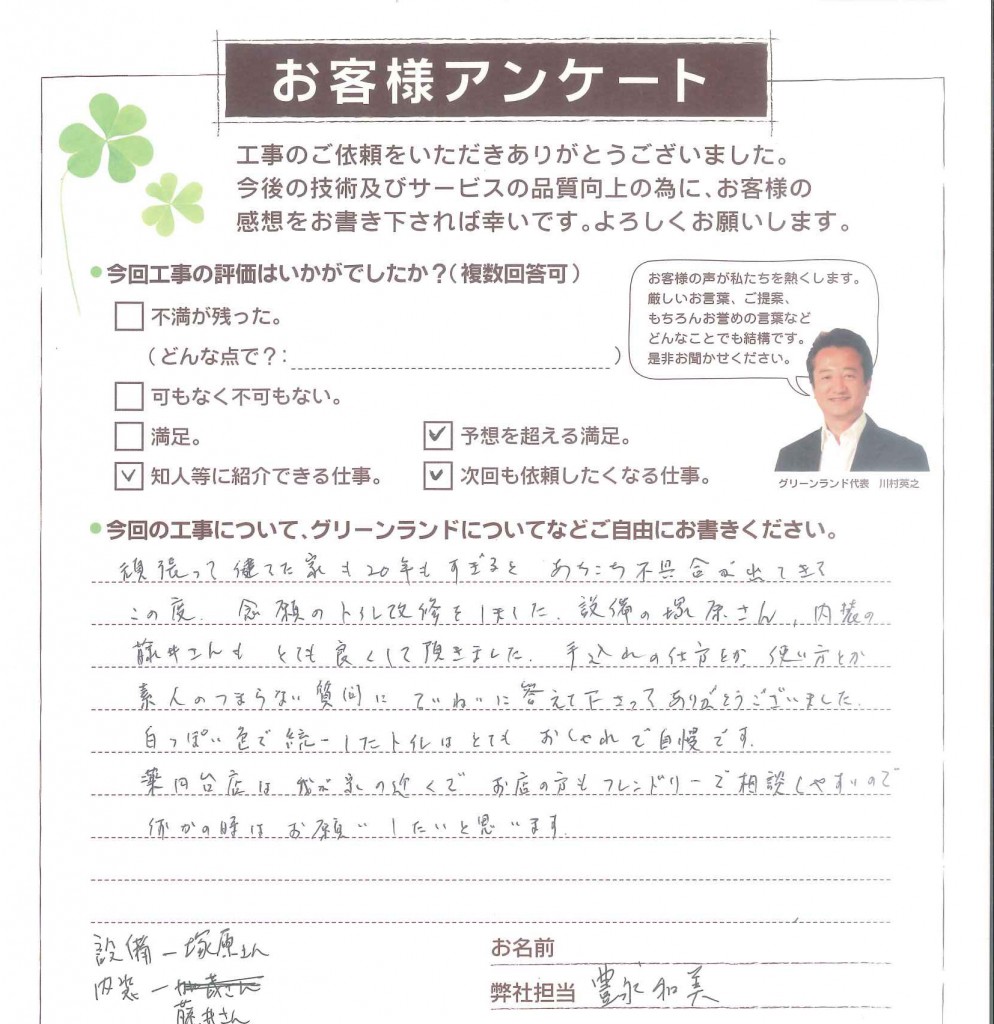 お客様アンケート
工事のご依頼をいただきありがとうございました。
今後の技術及びサービスの品質向上の為に、お客様の
感想をお書き下されば幸いです。よろしくお願いします。
●今回工事の評価はいかがでしたか？（複数回答可）
不満が残った。
（どんな点で？：　　　）
可もなく不可もない。
満足。
予想を超える満足。
知人等に紹介できる仕事。
次回も依頼したくなる仕事。
お客様の声が私たちを熱くします。
厳しいお言葉、ご提案、
もちろんお誉めの言葉など
どんなことでも結構です。
是非お聞かせください。
グリーンランド代表　川村英之
●今回の工事について、グリーンランドについてなどご自由にお書きください。
頑張って健てた家も20年もすぎると あちこち不具合が出てきて
この度、念願のトイレ改修をしました。設備の塚原さん、内装の
藤井さんも とても良くして頂きました。手込れの仕方とか、使い方とか
素人のつまらない質問に ていねいに答えて下さってありがとうございました。
白っぽい色で統一したトイレはとても おしゃれで自慢です。
薬円台店は 我が家の近くで お店の方もフレンドリーで相談しやすいので
何かの時は お願い したいと思います。
設備ー塚原さん
内装ー
藤井さん
お名前
弊社担当 豊永和美